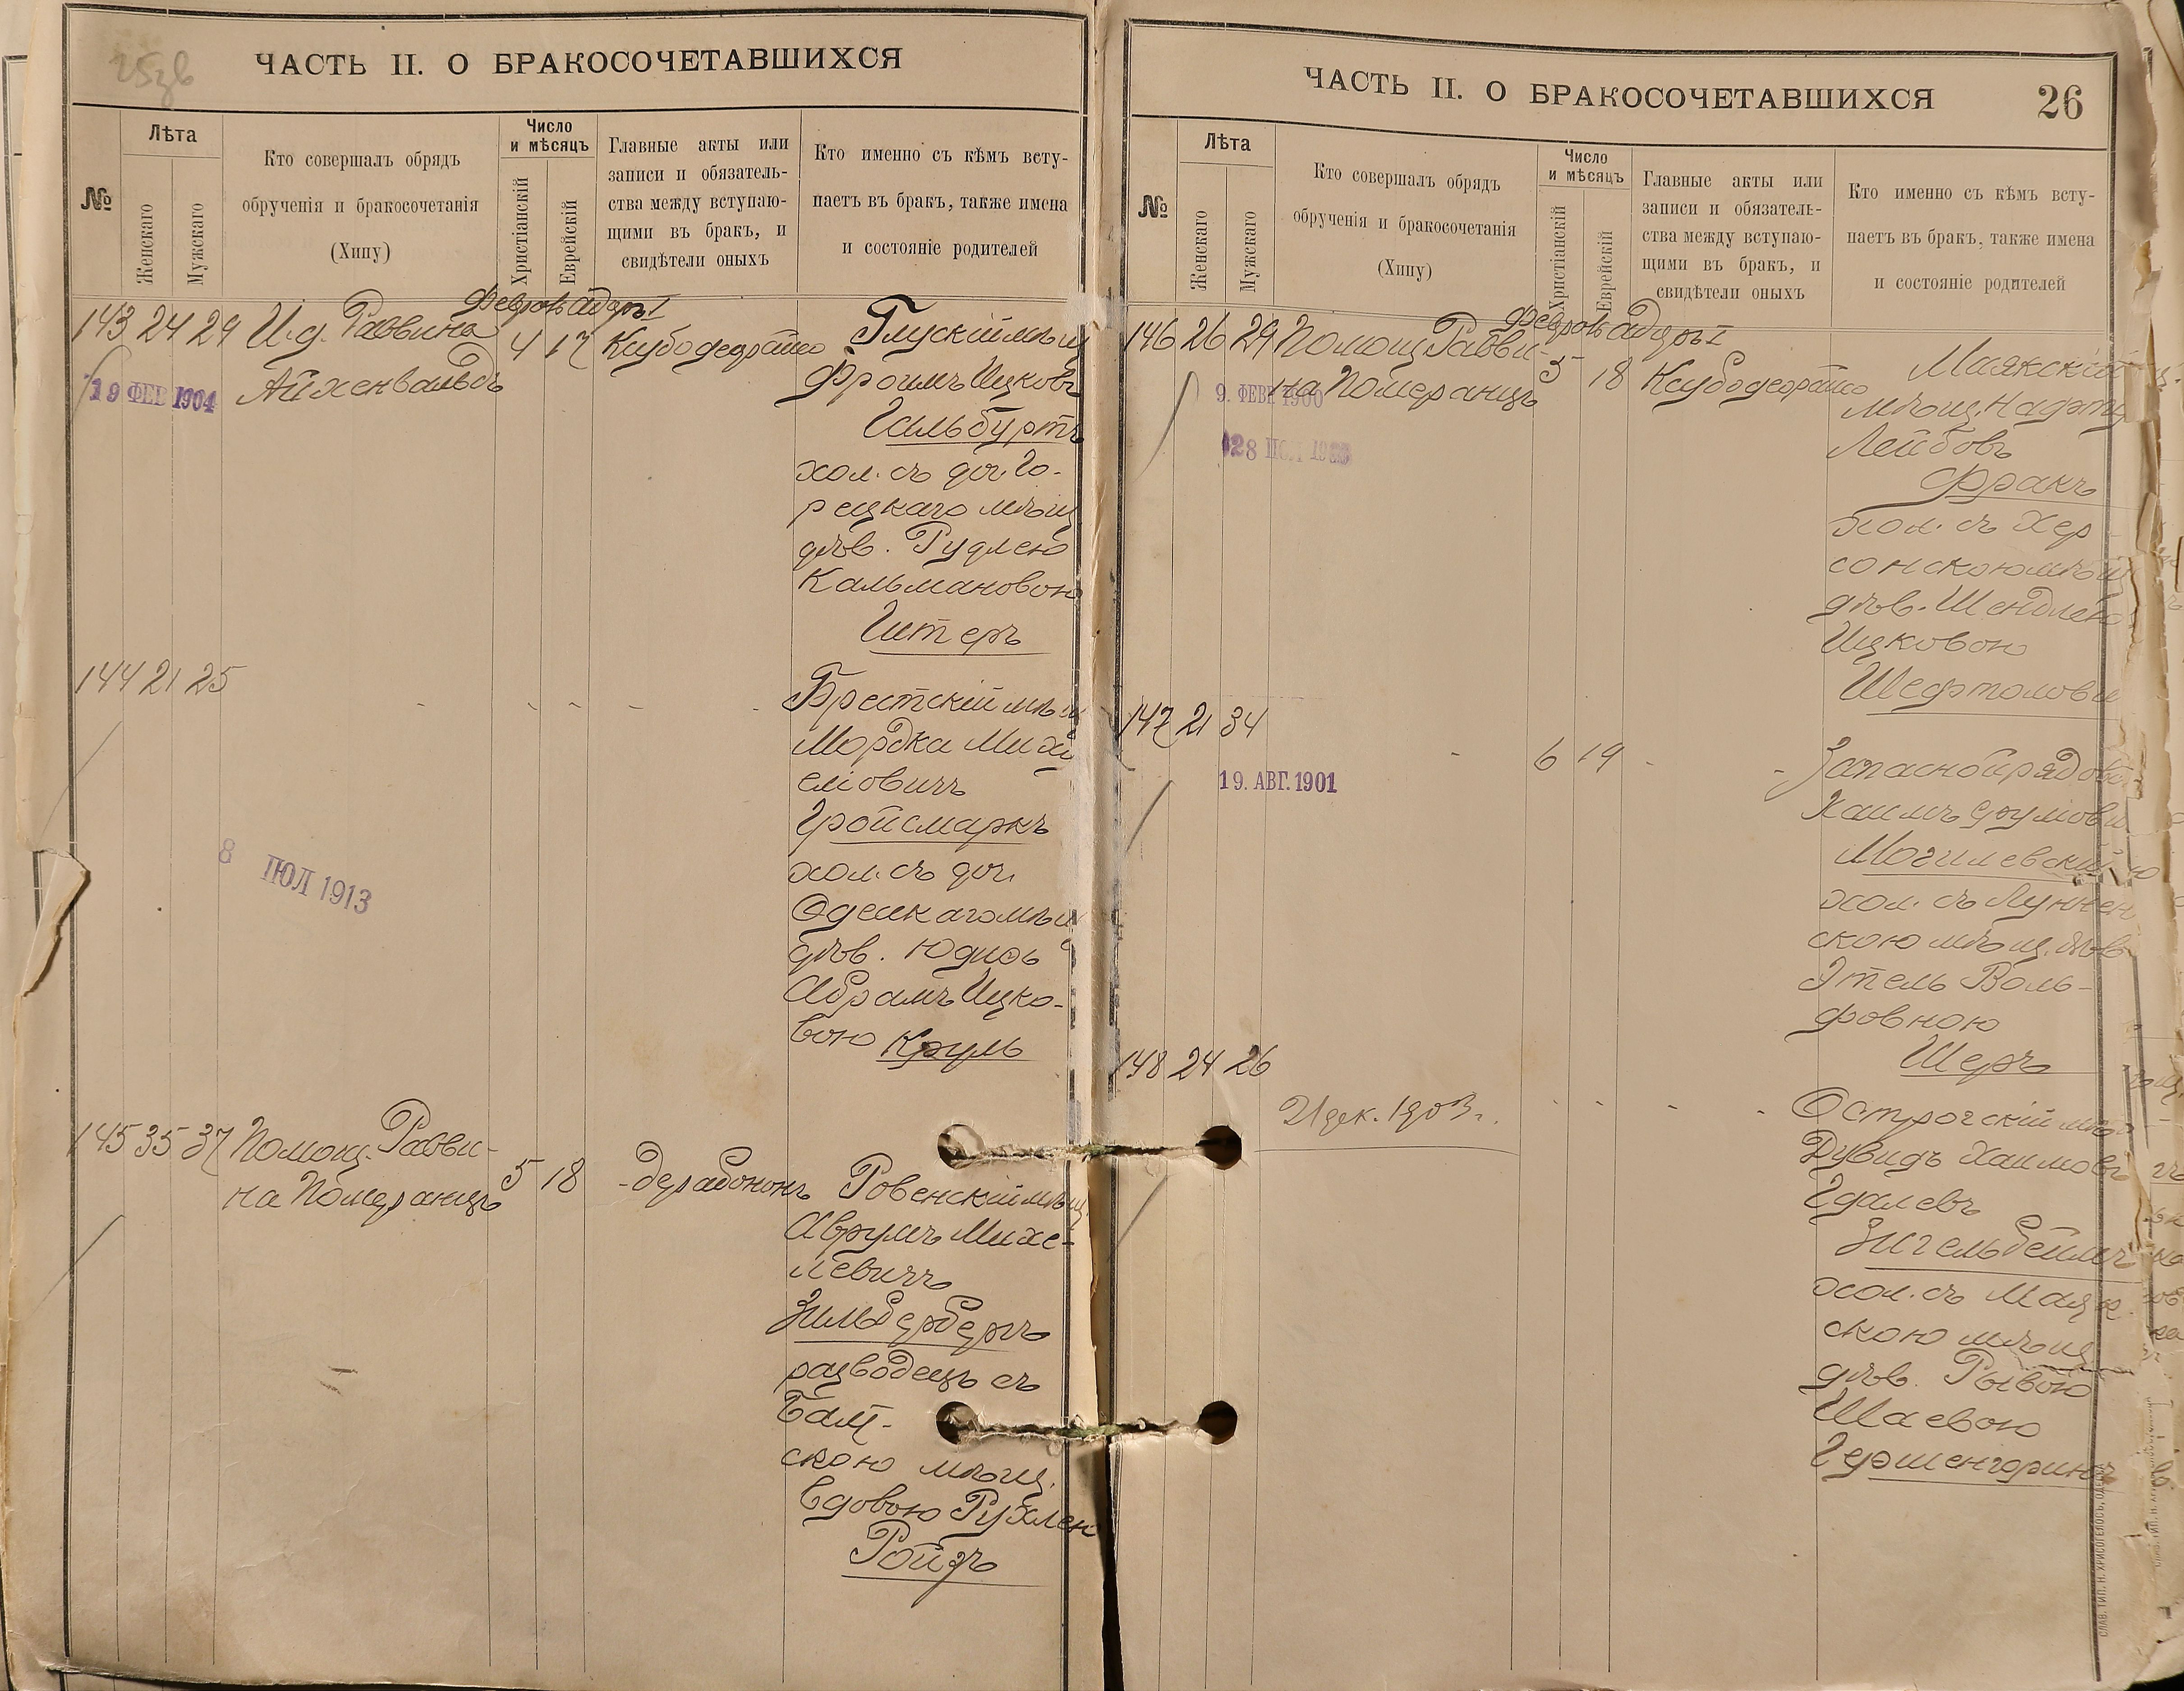 25об
ЧАСТЬ II. О БРАКОСОЧЕТАВШИХСЯ
№
Лѣта
Женскаго
Мужскаго
Кто совершалъ обрядъ
обрученія и бракосочетанія
(Хипу)
Число
и мѣсяцъ
Христіанскій
Еврейскій
Главные акты или
записи и обязатель-
ства между вступаю-
щими въ бракъ, и
свидѣтели оныхъ
Кто именно съ кѣмъ всту-
паетъ въ бракъ, также имена
и состояніе родителей
Февраль Адаръ I
143 24 29 И.д. Раввина 4 17 Ксубо деорайсо Глускій мѣщ
Айхенвальдъ
19 ФЕВ 1904
Фроимъ Ицковъ
Гильбуртъ
хол. съ доч. Го-
рецкаго мѣщ
дѣв. Рудлею
Кальмановою
Гитеръ
144 21 25 - - - - - Брестскій мѣщ
Мордка Михи
еліовичъ
Гройсмаркъ
хол. съ доч.
8 ІЮЛ 1913
Одесскаго мѣщ
дѣв. Юдисъ
Абрамъ Ицко-
вою Круль
145 35 37 Помощ. Равви-
на Померанцъ 5 18 - дерабононъ Ровенскій мѣщ
Аврумъ Михе-
левичъ
Зильберберъ
разводецъ съ
Балт-
скою мѣщ.
вдовою Рухлею
Ройзъ
ЧАСТЬ II. О БРАКОСОЧЕТАВШИХСЯ
26
№
Лѣта
Женскаго
Мужскаго
Кто совершалъ обрядъ
обрученія и бракосочетанія
(Хипу)
Число
и мѣсяцъ
Христіанскій
Еврейскій
Главные акты или
записи и обязатель-
ства между вступаю-
щими въ бракъ, и
свидѣтели оныхъ
Кто именно съ кѣмъ всту-
паетъ въ бракъ, также имена
и состояніе родителей
Февраль Адаръ I
146 26 29 Помощ Равви-
на Померанцъ 5 18 Ксубо деорайсо Маякскій
9. ФЕВР 1900
28
мѣщ. Нафту
Лейбовъ
Фракъ
хол. съ Хер
сонскою мѣщ
дѣв. Шендлею
Ицковою
Шефтолови
147 21 34
6 19 - - Запасной рядовой
19. АВГ. 1901
Хаимъ Сруліови
Могилевскій
хол. съ Лункен
скою мѣщ. дѣв
Этель Воль-
фовною
Шеръ
148 24 26
21 дек. 1903 г.
- - - - Острогскій мѣщ
Дувидъ Хаимовъ
Гдалевъ
Зигельбеймъ
хол. съ Маяк
скою мѣщ
дѣв. Рывою
Шаевою
Гершенгоринъ
СЛАВ. ТИП. Н. ХРИСОГЕЛОСЪ, ОДЕССА